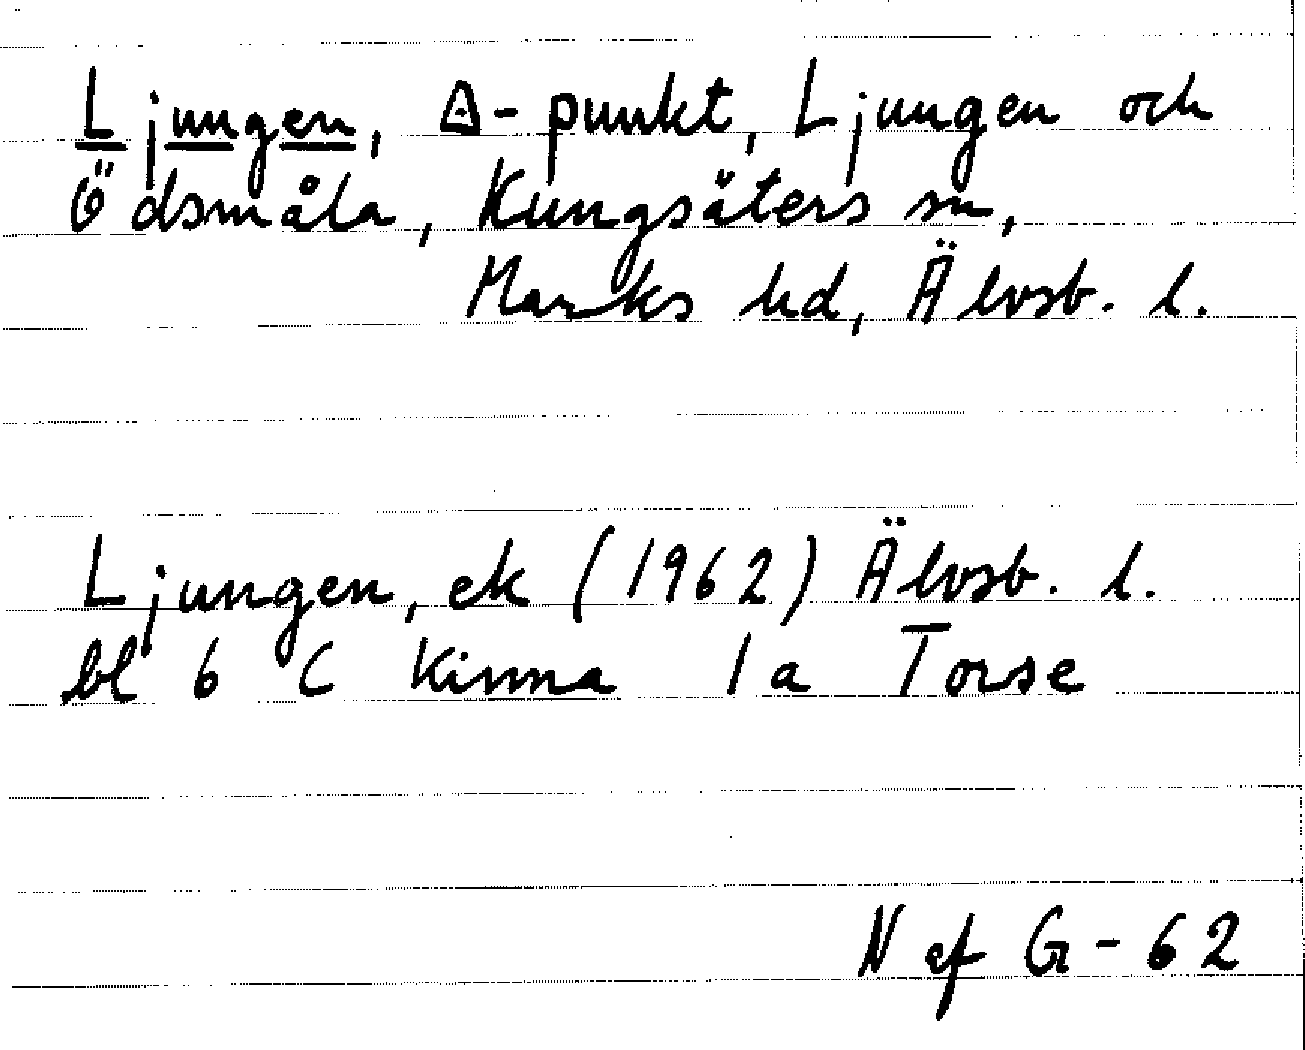 Ljungen, △-punkt, Ljungen och
Ödsmåla, Kungsäters sn,
Marks hd, Älvsb. l.
Ljungen, ek (1962) Älvsb. l.
bl 6 C Kinna 1a Torse
N ef G-62